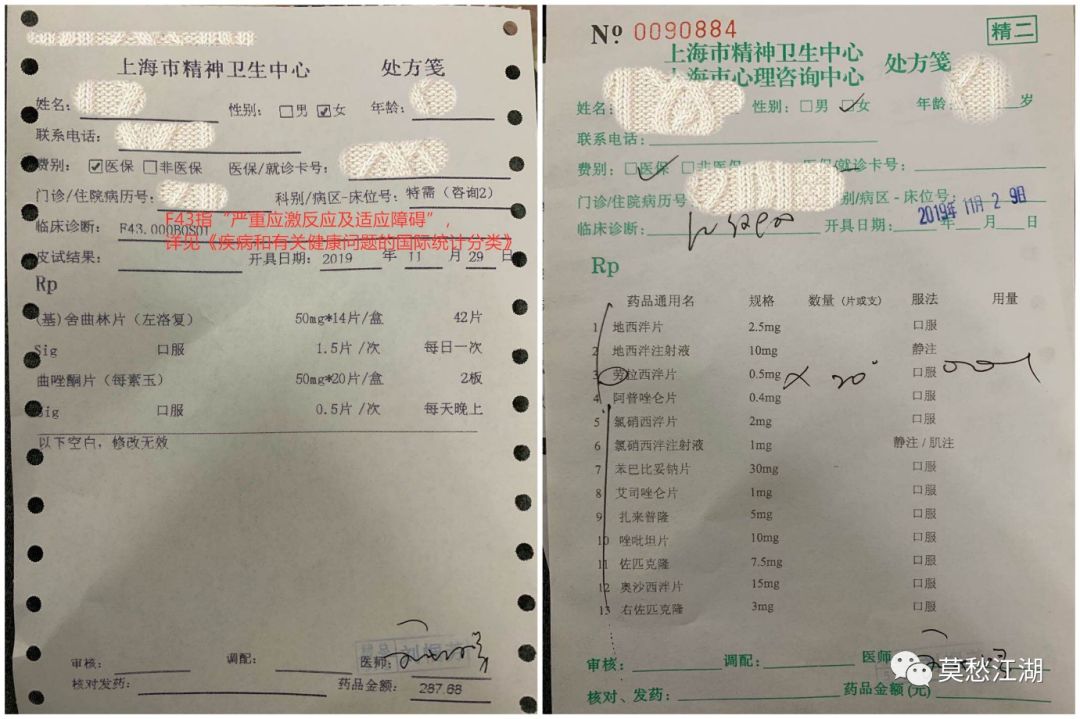 上海市精神卫生中心 处方笺
姓名: 性别: □男 ☑女 年龄:
联系电话:
费别: ☑医保 □非医保 医保/就诊卡号:
门诊/住院病历号: 科别/病区-床位号: 特需（咨询2）
F43指“严重应激反应及适应障碍”，
临床诊断: F43.000B0S01
详见《疾病和有关健康问题的国际统计分类》
皮试结果: 开具日期: 2019 年 11 月 29 日
Rp
(基)舍曲林片（左洛复） 50mg*14片/盒 42片
Sig 口服 1.5片 /次 每日一次
曲唑酮片（每素玉） 50mg*20片/盒 2板
Sig 口服 0.5片 /次 每天晚上
以下空白，修改无效
审核: 调配: 医师:
核对发药: 药品金额: 287.68
Nº 0090884
精二
上海市精神卫生中心
上海市心理咨询中心 处方笺
姓名: 性别: □男 □女 年龄: 岁
联系电话:
费别: □医保 □非医保 医保/就诊卡号:
门诊/住院病历号 别/病区-床位号
2019年 11月 29日
临床诊断: 开具日期: 年 月 日
Rp
药品通用名 规格 数量（片或支） 服法 用量
1 地西泮片 2.5mg 口服
2 地西泮注射液 10mg 静注
3 劳拉西泮片 0.5mg × 20 口服
4 阿普唑仑片 0.4mg 口服
5 氯硝西泮片 2mg 口服
6 氯硝西泮注射液 1mg 静注/肌注
7 苯巴比妥钠片 30mg 口服
8 艾司唑仑片 1mg 口服
9 扎来普隆 5mg 口服
10 唑吡坦片 10mg 口服
11 佐匹克隆 7.5mg 口服
12 奥沙西泮片 15mg 口服
13 右佐匹克隆 3mg 口服
审核: 调配: 医师
核对、发药: 药品金额(元)
莫愁江湖